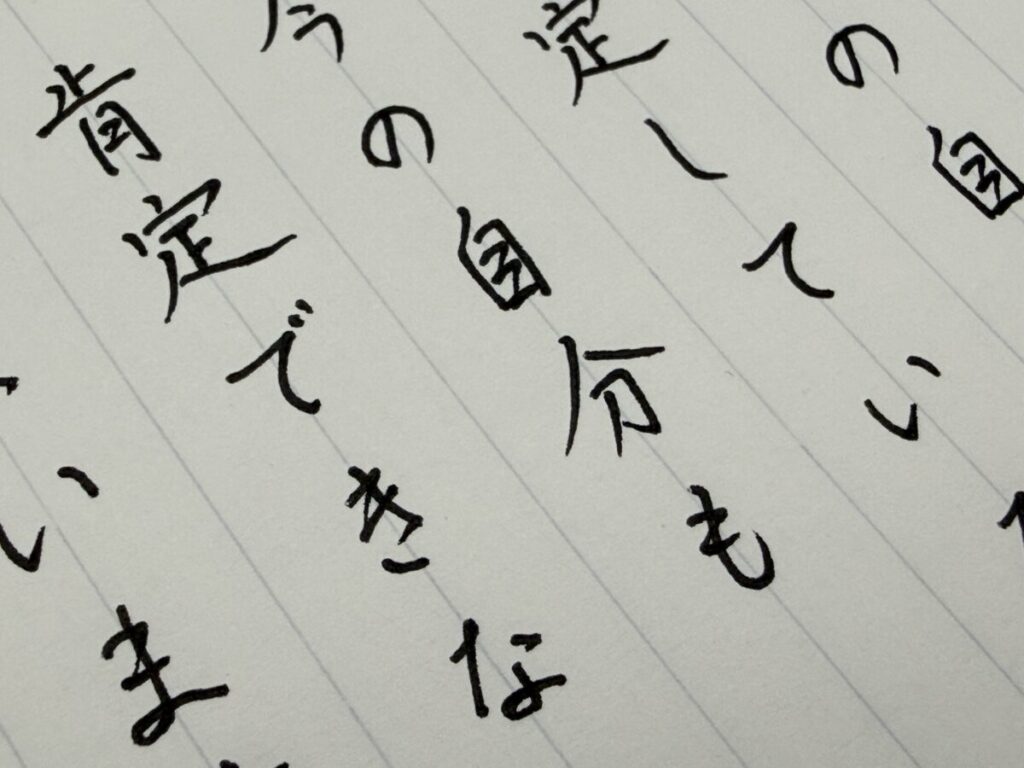 の自
定してい
今の自分も
肯定できな
いま